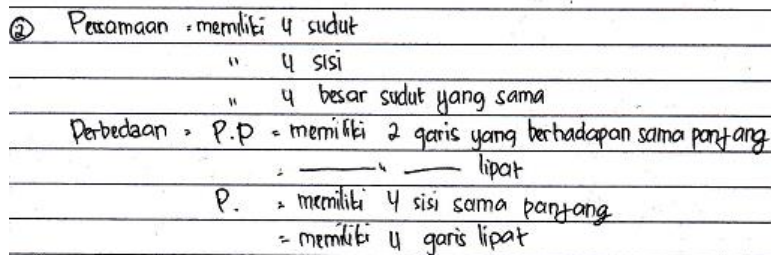 ② Persamaan = memiliki 4 sudut
" 4 sisi
" 4 besar sudut yang sama
Perbedaan = P.P = memiliki 2 garis yang berhadapan sama panjang
= —— " —— lipat
P. = memiliki 4 sisi sama panjang
= memiliki 4 garis lipat